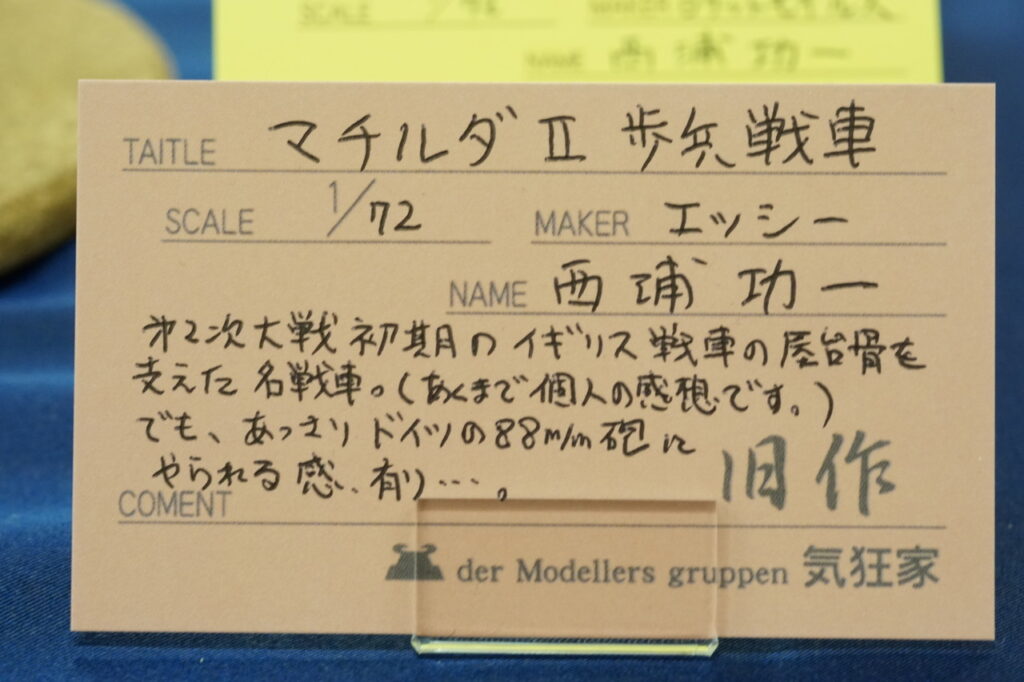 SCALE 1/72
NAME 西浦功一
TAITLE マチルダⅡ 歩兵戦車
SCALE 1/72 MAKER エッシー
NAME 西浦 功一
㐧2次大戦初期のイギリス戦車の屋台骨を
支えた名戦車。(あくまで個人の感想です。)
でも、あっさりドイツの88m/m砲に
やられる感、有り…。
旧作
COMENT
der Modellers gruppen 気狂家